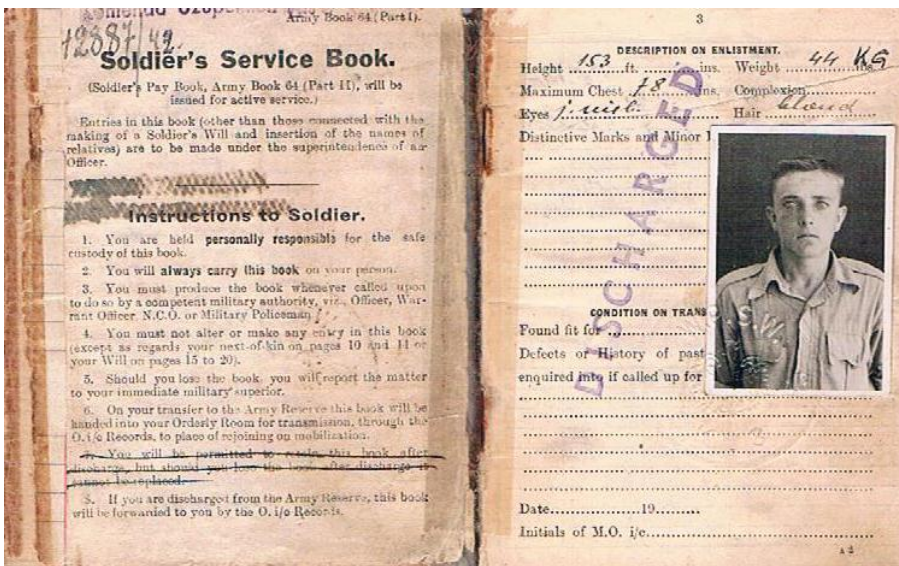 Army Book 64 (Part I).
12887/42.
Soldier's Service Book.
(Soldier's Pay Book, Army Book 64 (Part II), will be
issued for active service.)
Entries in this book (other than those connected with the
making of a Soldier's Will and insertion of the names of
relatives) are to be made under the superintendence of an
Officer.
Instructions to Soldier.
1. You are held personally responsible for the safe
custody of this book.
2. You will always carry this book on your person.
3. You must produce the book whenever called upon
to do so by a competent military authority, viz., Officer, War-
rant Officer, N.C.O. or Military Policeman
4. You must not alter or make any entry in this book
(except as regards your next-of-kin on pages 10 and 11 or
your Will on pages 15 to 20).
5. Should you lose the book, you will report the matter
to your immediate military superior.
6. On your transfer to the Army Reserve this book will be
handed into your Orderly Room for transmission, through the
O. i/c Records, to place of rejoining on mobilization.
7. You will be permitted to retain this book after
discharge, but should you lose the book after discharge it
cannot be replaced.
8. If you are discharged from the Army Reserve, this book
will be forwarded to you by the O. i/c Records.
3
DESCRIPTION ON ENLISTMENT.
Height 153 ft. ins. Weight 44 KG
Maximum Chest 78 ins. Complexion
Eyes Hair
Distinctive Marks and Minor
DISCHARGED
CONDITION ON TRANS
Found fit for
Defects or History of past
enquired into if called up for
Date 19
Initials of M.O. i/c
A 2